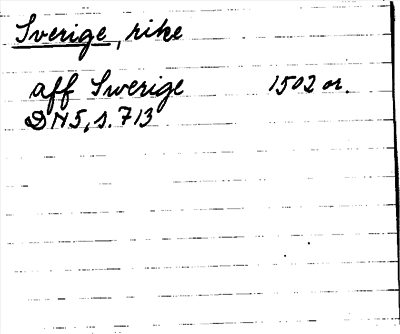 Sverige, rike
aff Swerige 1502 or.
DN5, s. 713